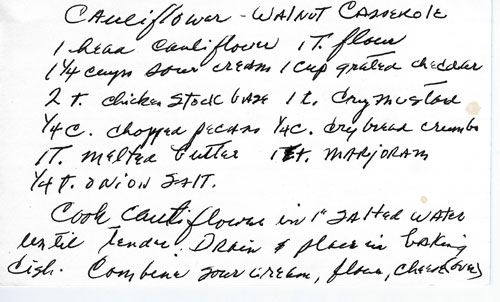 Cauliflower - Walnut Casserole
1 head cauliflower 1 T. flour
1 1/4 cups sour cream 1 cup grated cheddar
2 t. chicken stock base 1 t. dry mustard
1/4 c. chopped pecans 1/4 c. dry bread crumbs
1 T. melted butter 1 t. marjoram
1/4 t. onion salt.
Cook cauliflower in 1" salted water
until tender. Drain & place in baking
dish. Combine sour cream, flour, cheese (over)